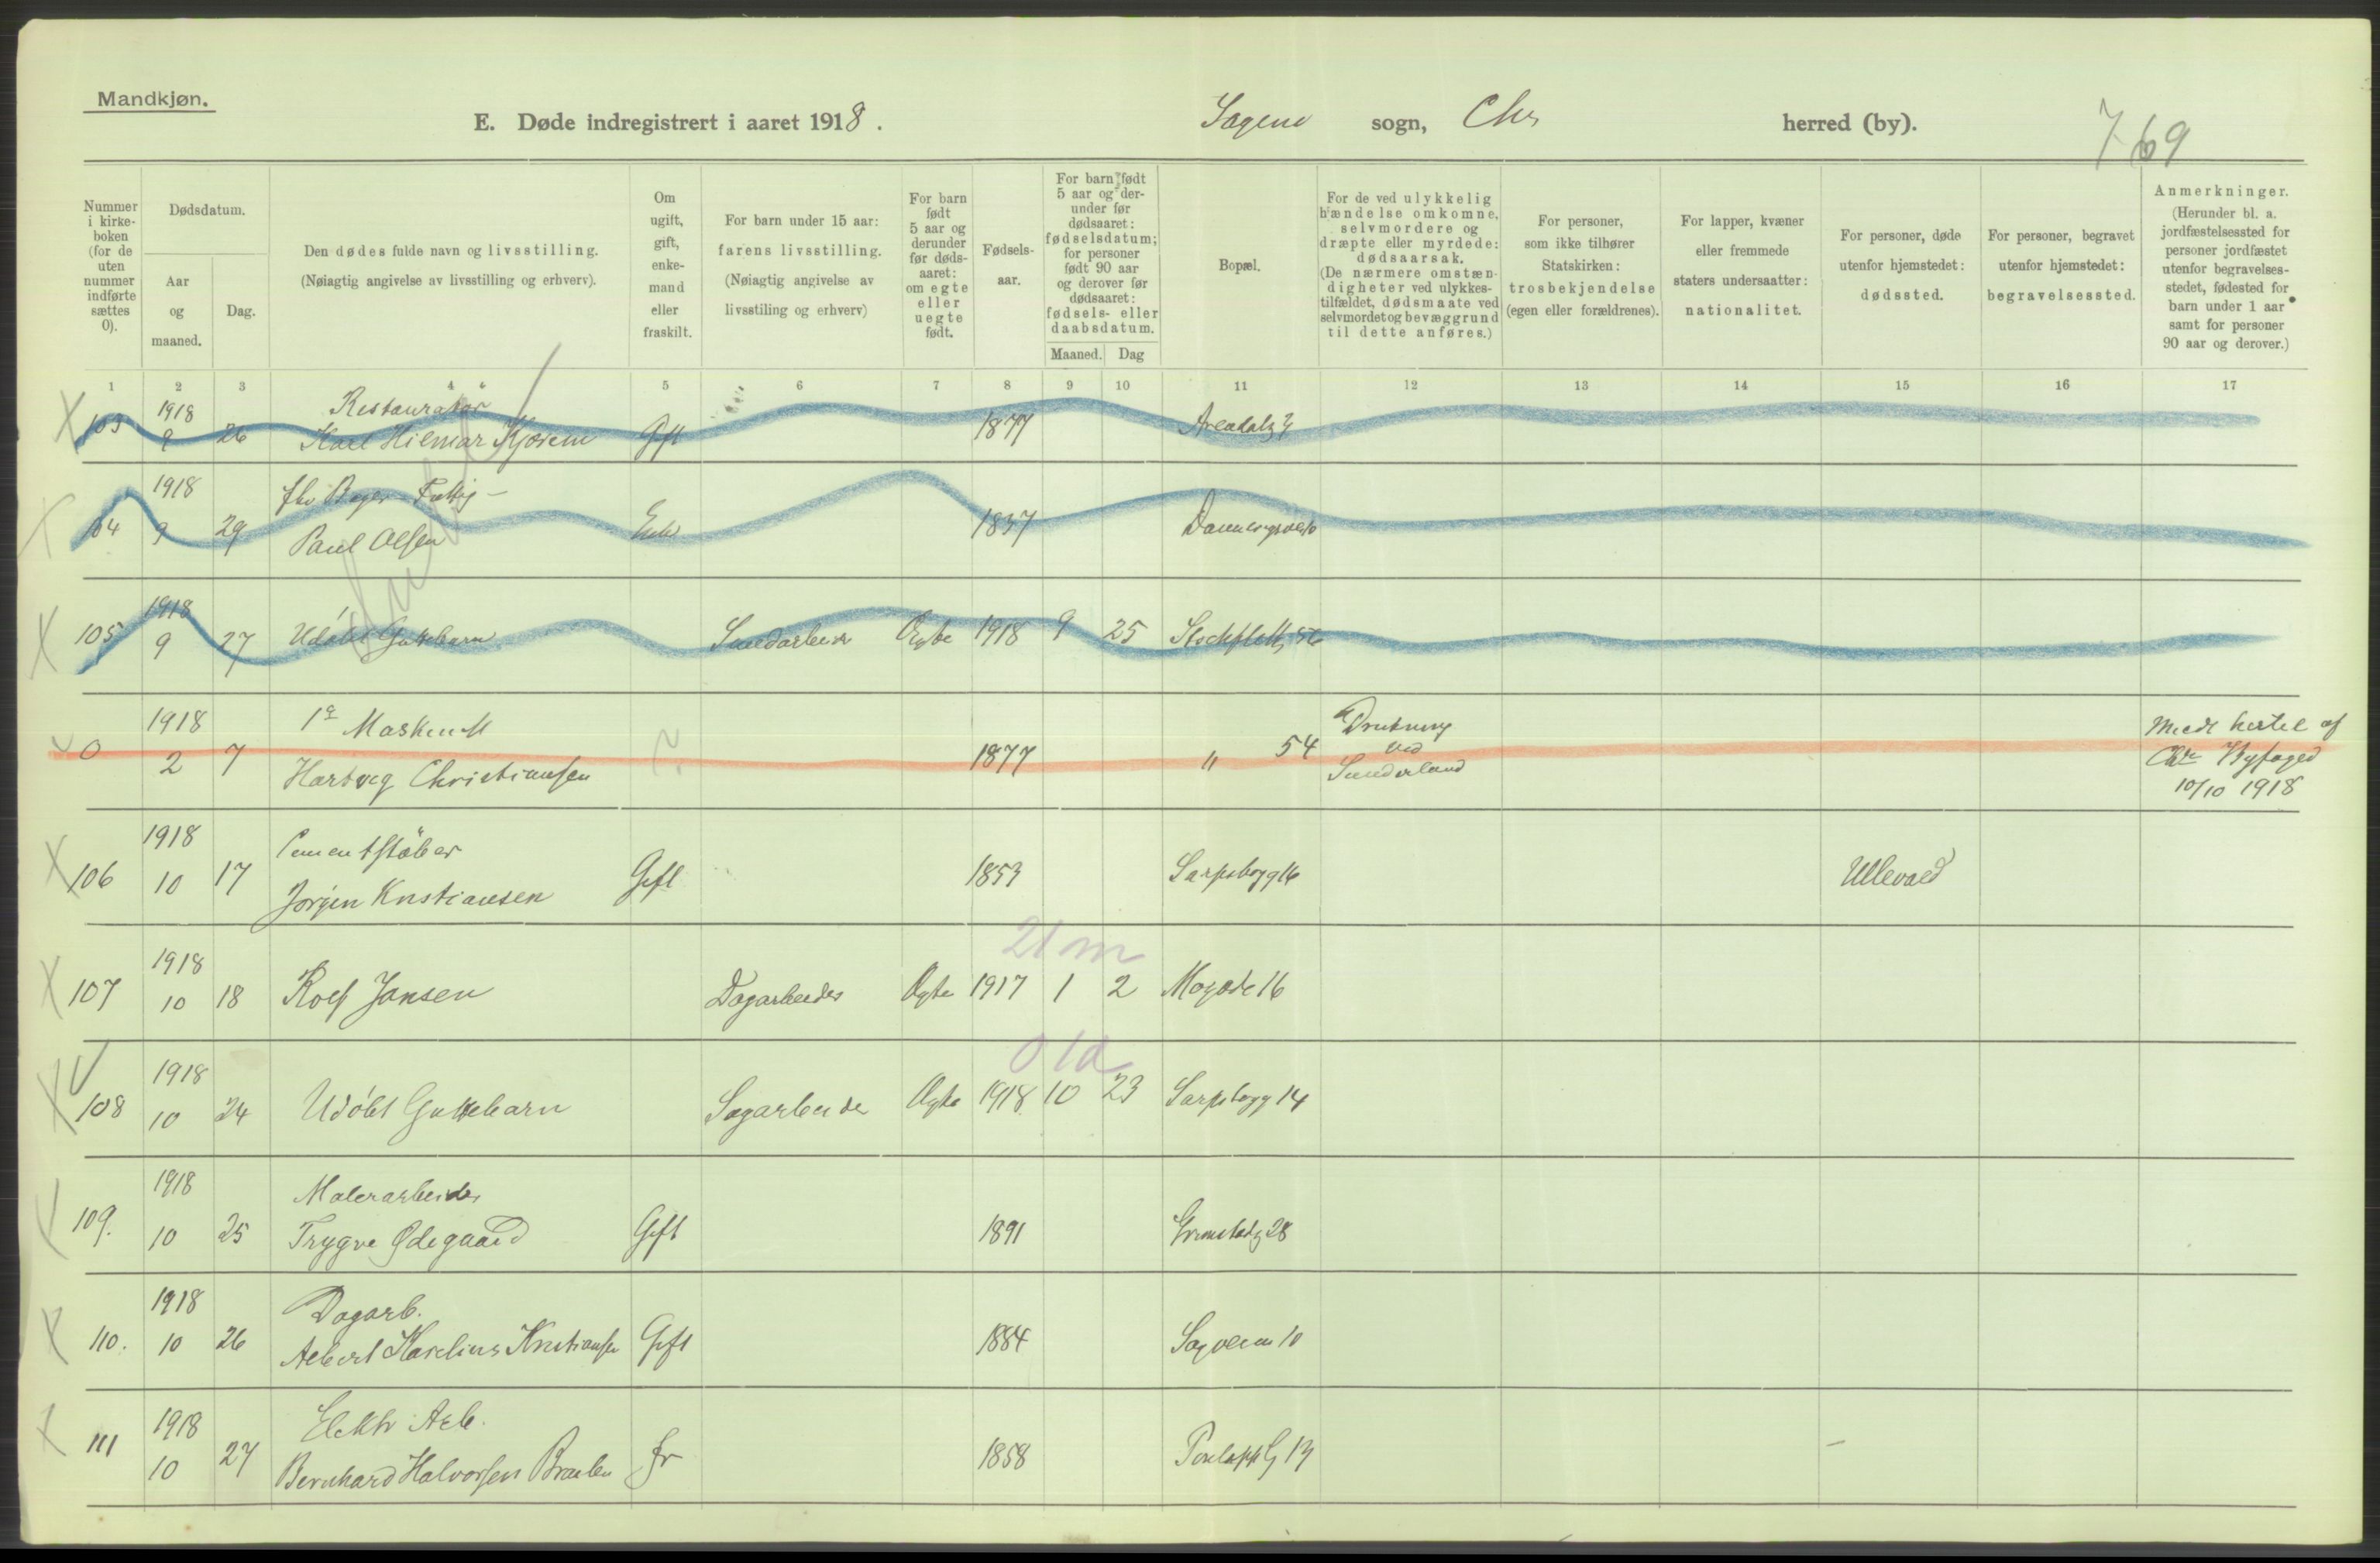 Mandkjøn.
E. Døde indregistrert i aaret 1918.
Sagene sogn, Chr herred (by).
769
Nummer i kirkeboken (for de uten nummer indførte sættes 0).
Dødsdatum.
Aar og maaned.
Dag.
Den dødes fulde navn og livsstilling.
(Nøiagtig angivelse av livsstilling og erhverv).
Om ugift, gift, enkemand eller fraskilt.
For barn under 15 aar: farens livsstilling.
(Nøiagtig angivelse av livsstiling og erhverv)
For barn født 5 aar og derunder før dødsaaret: om egte eller uegte født.
Fødselsaar.
For barn født 5 aar og derunder før dødsaaret: fødselsdatum; for personer født 90 aar og derover før dødsaaret: fødsels- eller daabsdatum.
Maaned. Dag
Bopæl.
For de ved ulykkelig hændelse omkomne, selvmordere og dræpte eller myrdede: dødsaarsak.
(De nærmere omstændigheter ved ulykkestilfældet, dødsmaate ved selvmordet og bevæggrund til dette anføres.)
For personer, som ikke tilhører Statskirken: trosbekjendelse (egen eller forældrenes).
For lapper, kvæner eller fremmede staters undersaatter: nationalitet.
For personer, døde utenfor hjemstedet: dødssted.
For personer, begravet utenfor hjemstedet: begravelsessted.
Anmerkninger.
(Herunder bl. a. jordfæstelsessted for personer jordfæstet utenfor begravelsesstedet, fødested for barn under 1 aar samt for personer 90 aar og derover.)
1 2 3 4 5 6 7 8 9 10 11 12 13 14 15 16 17
1918 Restauratør
103 9 26 Karl Hilmar Kjosem Gift 1877 Arendalsg
1918 fhv Bager - Fattig -
104 9 29 Paul Olsen Enke 1837
1918
105 9 27 Udøbt Guttebarn Smedarbeider Ægte 1918 9 25 Stockflethg 56
1918 1ste Maskinist
0 2 7 Hartvig Christiansen ? 1877 " 54 Drukning ved Sunderland
Medt hertil af Chr Byfoged 10/10 1918
1918 Cementstøber
106 10 17 Jørgen Kristiansen Gift 1853 Sarpsborgg 16 Ullevaal
21 m
1918
107 10 18 Rolf Jansen Dagarbeider Ægte 1917 1 2 16
0 1d
1918
108 10 24 Udøbt Guttebarn Sagarbeider Ægte 1918 10 23 Sarpsborgg 14
1918 Malerarbeider
109. 10 25 Trygve Ødegaard Gift 1891 Grimstadg 28
1918 Dagarb.
110. 10 26 Albert Karelius Kristiansen Gift 1884 Sagveien 10
1918 Elektr Arb.
111 10 27 Bernhard Halvorsen Braaten fr 1858 -